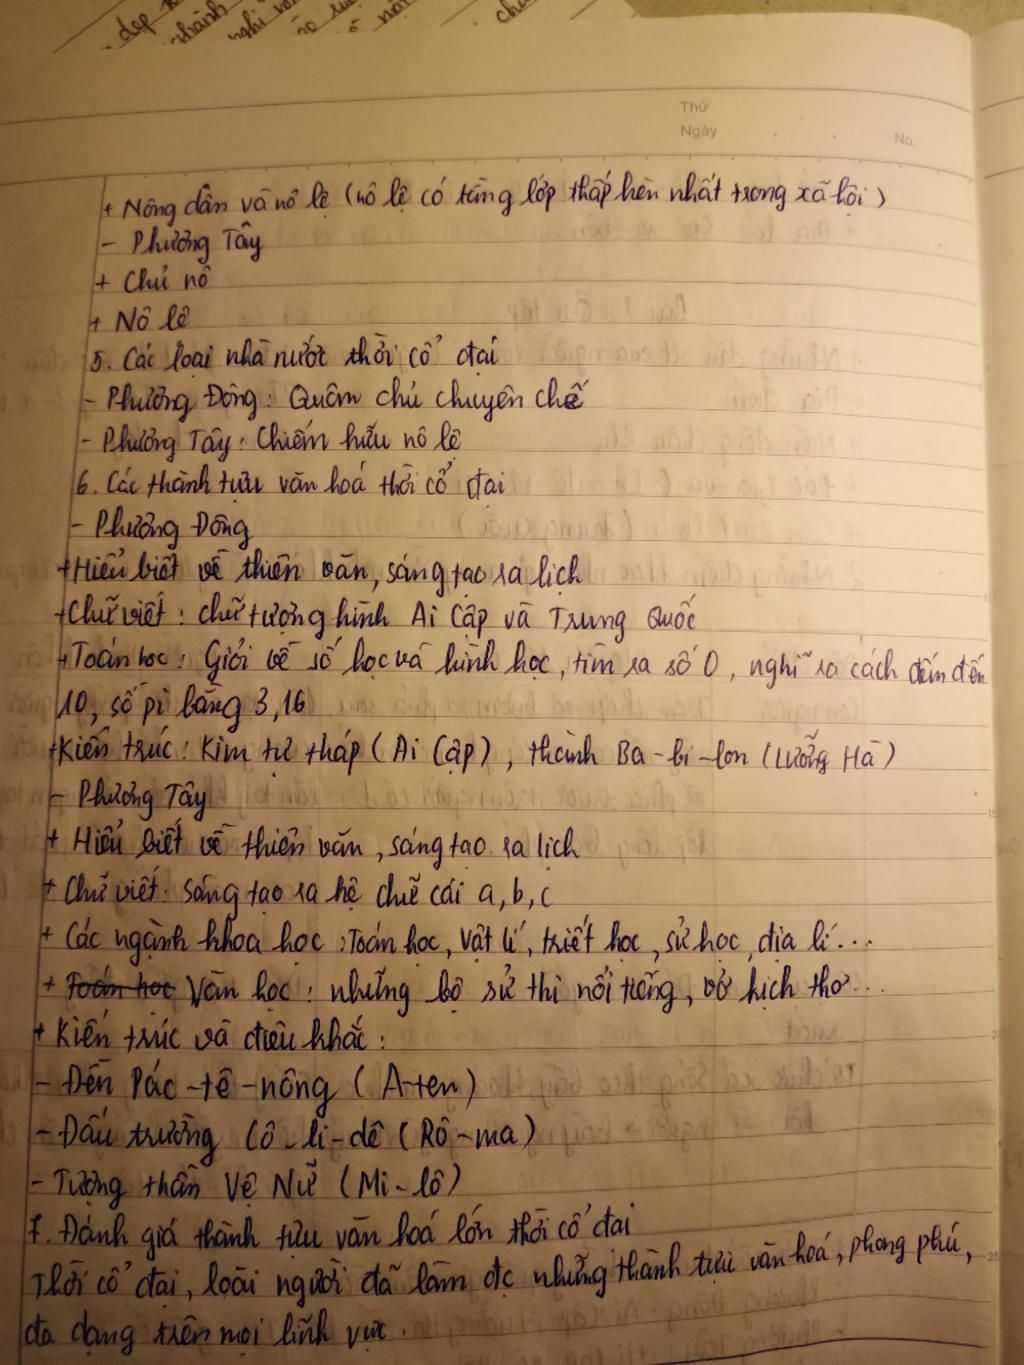 đẹp
thành
nghi
Thứ
Ngày
No.
+ Nông dân và nô lệ (nô lệ có tầng lớp thấp hèn nhất trong xã hội)
- Phương Tây
+ Chủ nô
+ Nô lê
5. Các loại nhà nước thời cổ đại
- Phương Đông: Quân chủ chuyên chế
- Phương Tây: Chiếm hữu nô lệ
6. Các thành tựu văn hoá thời cổ đại
- Phương Đông
+Hiểu biết về thiên văn, sáng tạo ra lịch
+Chữ viết: chữ tượng hình Ai Cập và Trung Quốc
+Toán học: Giỏi về số học và hình học, tìm ra số 0, nghĩ ra cách đếm đến
10, số pi bằng 3,16
+Kiến trúc: Kim tự tháp (Ai Cập), thành Ba-bi-lon (Lưỡng Hà)
- Phương Tây
+ Hiểu biết về thiên văn, sáng tạo ra lịch
+ Chữ viết: sáng tạo ra hệ chữ cái a, b, c
+ Các ngành khoa học: Toán học, Vật lí, triết học, sử học, địa lí...
+ Toán học Văn học: những bộ sử thi nổi tiếng, vở kịch thơ...
+ Kiến trúc và điêu khắc:
- Đền Pác-tê-nông (A-ten)
- Đấu trường Cô-li-dê (Rô-ma)
- Tượng thần Vệ Nữ (Mi-lô)
7. Đánh giá thành tựu văn hoá lớn thời cổ đại
Thời cổ đại, loài người đã làm đc những thành tựu văn hoá, phong phú,
đa dạng trên mọi lĩnh vực.